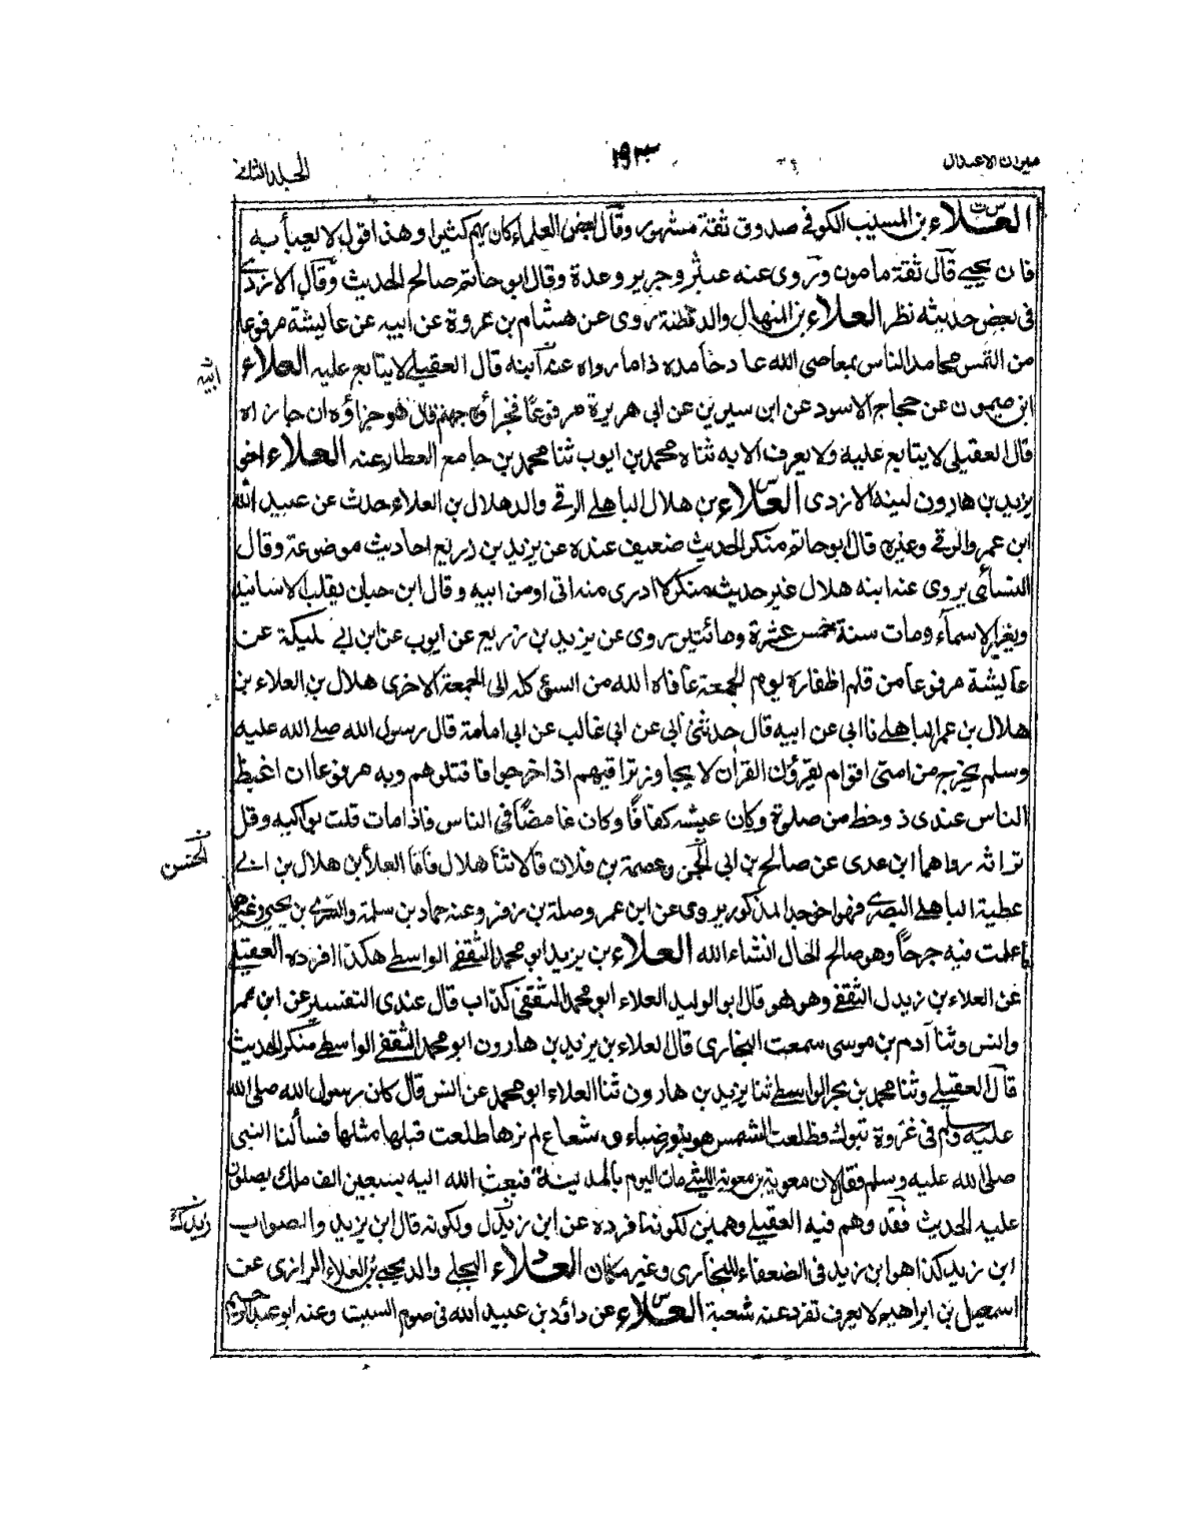 ميزان الاعتدال
١٩٣
الجلد الثانى
العلاء بن المسيب الكوفي صدوق ثقة مشهور وقال بعض العلماء كان يهم كثيرا وهذا قول لا يعبأ به
فان يحيى قال ثقة مامون وروى عنه عبثر وجرير وعدة وقال ابو حاتم صالح الحديث وقال الازدى
فى بعض حديثه نظر العلاء بن المنهال والد قطبة روى عن هشام بن عروة عن ابيه عن عايشة مرفوعا
من التمس محامد الناس بمعاصى الله عاد حامده ذاما رواه عنه ابنه قال العقيلى لا يتابع عليه العلاء
ابن ميمون عن حجاج الاسود عن ابن سيرين عن ابى هريرة مرفوعا فجزاؤه جهنم قال هو جزاؤه ان جازاه
قال العقيلى لا يتابع عليه ولا يعرف الا به ثناه محمد بن ايوب ثنا محمد بن جامع العطار عنه العلاء اخو
يزيد بن هارون لينه الازدى العلاء بن هلال الباهلى الرقى والد هلال بن العلاء حدث عن عبيد الله
ابن عمرو الرقى وغيره قال ابو حاتم منكر الحديث ضعيف عنده عن يزيد بن زريع احاديث موضوعة وقال
النسائى يروى عنه ابنه هلال غير حديث منكر لا ادرى منه اتى او من ابيه وقال ابن حبان يقلب الاسانيد
ويغير الاسماء ومات سنة خمس عشرة ومائتين روى عن يزيد بن زريع عن ايوب عن ابن ابى مليكة عن
عايشة مرفوعا من قلم اظفاره يوم الجمعة عافاه الله من السوء كله الى الجمعة الاخرى هلال بن العلاء بن
هلال بن عمر الباهلى نا ابى عن ابيه قال حدثنى ابى عن ابى غالب عن ابى امامة قال رسول الله صلى الله عليه
وسلم يخرج من امتى اقوام يقرؤن القرآن لا يجاوز تراقيهم اذا خرجوا فاقتلوهم وبه مرفوعا ان اغبط
الناس عندى ذو حظ من صلوة وكان عيشه كفافا وكان غامضا فى الناس فاذا مات قلت بواكيه وقل
تراثه رواهما ابن عدى عن صالح بن ابى الجن وعصمة بن فلان قالا ثنا هلال فاما العلاء بن هلال بن ابى
عطية الباهلى البصرى فهو اخو جد المذكور يروى عن ابن عمر وصلة بن زفر وعنه حماد بن سلمة والسرى بن يحيى وغيرهما
ما علمت فيه جرحا وهو صالح الحال انشاء الله العلاء بن يزيد ابو محمد الثقفى الواسطى هكذا افرده العقيلى
عن العلاء بن زيدل الثقفى وهو هو قال ابو الوليد العلاء ابو محمد الثقفى كذاب قال عندى التفسير عن ابن عمر
وانس وثنا آدم بن موسى سمعت البخارى قال العلاء بن يزيد بن هارون ابو محمد الثقفى الواسطى منكر الحديث
قال العقيلى وثنا محمد بن بحر الواسطى ثنا يزيد بن هارون ثنا العلاء ابو محمد عن انس قال كان رسول الله صلى الله
عليه وسلم فى غزوة تبوك وطلعت الشمس بنور ضياء وشعاع لم نرها طلعت قبلها مثلها فسألنا النبى
صلى الله عليه وسلم فقال ان معوية بن معوية الليثى مات اليوم بالمدينة فبعث الله اليه بسبعين الف ملك يصلون
عليه الحديث فقد وهم فيه العقيلى وهمين لكونه افرده عن ابن زيدل ولكونه قال ابن يزيد والصواب
ابن زيد كذا هو ابن زيد فى الضعفاء للبخارى وغير مكان العلاء البجلى والد يحيى بن العلاء الرازى عن
اسمعيل بن ابراهيم لا يعرف تفرد عنه شعبة العلاء عن داؤد بن عبيد الله فى صوم السبت وعنه ابو عبد الرحيم
ابيه
الحسن
زيدك